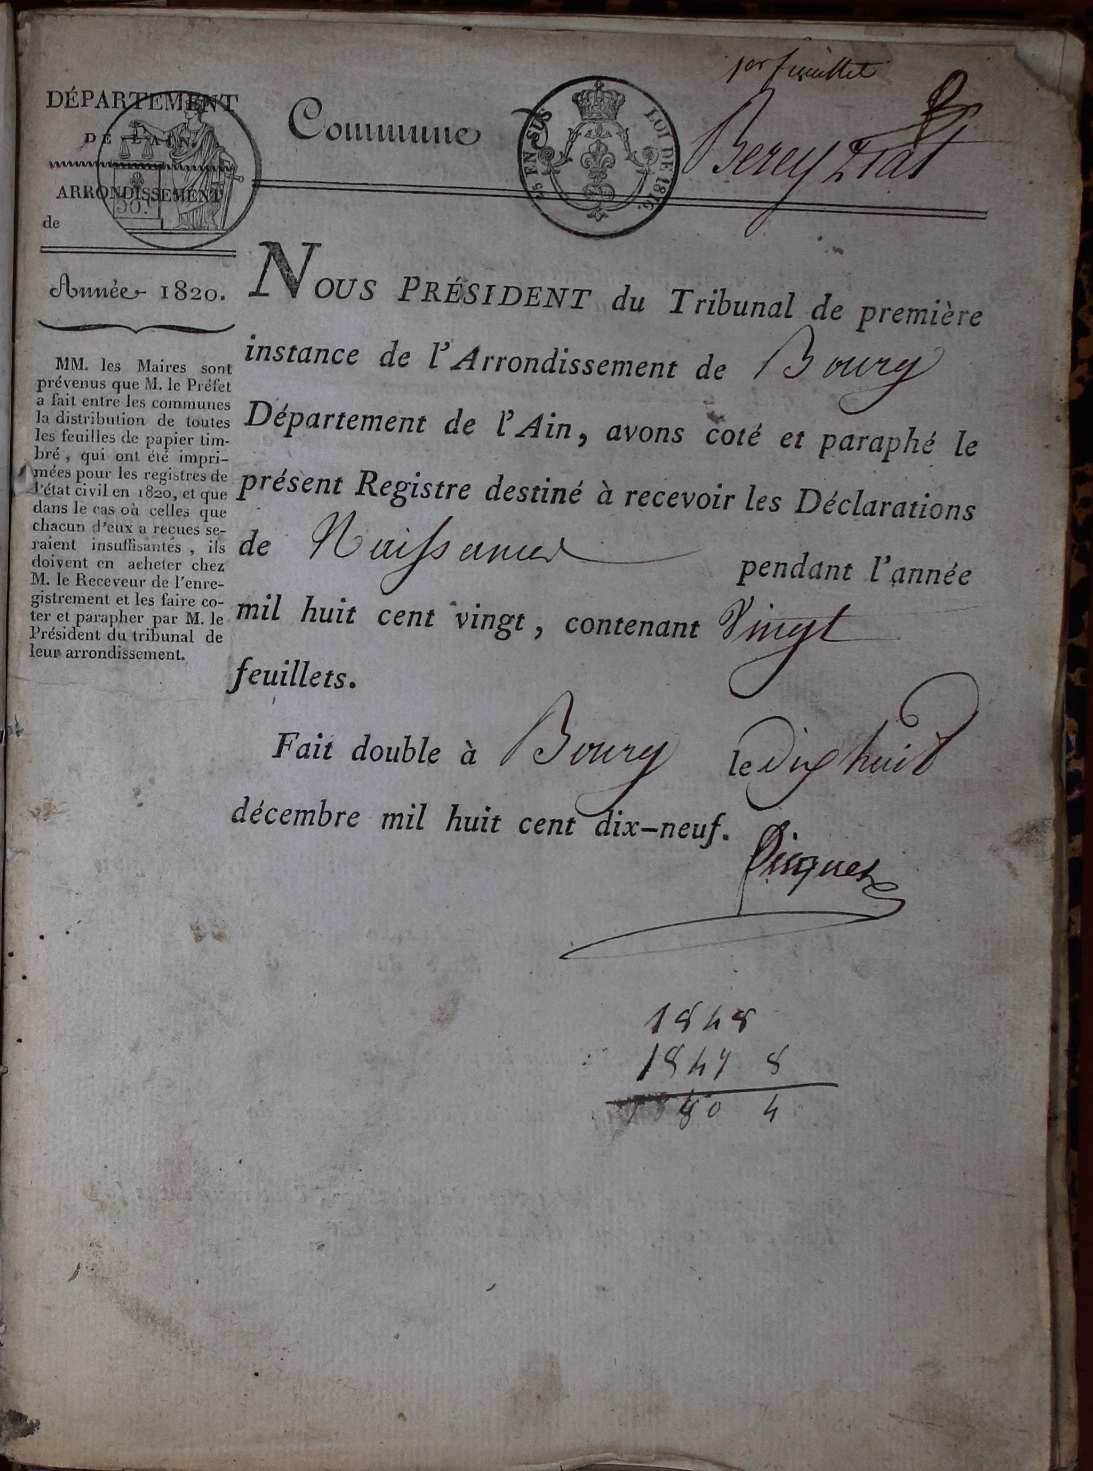 1er feuillet
DÉPARTEMENT
DE L'AIN.
ARRONDISSEMENT
de
Commune de
25 EN SUS
LOI DE 1816.
Bereyziat
Année 1820.
NOUS PRÉSIDENT du Tribunal de première
instance de l'Arrondissement de Bourg
Département de l'Ain, avons coté et paraphé le
présent Registre destiné à recevoir les Déclarations
de Naissances pendant l'année
mil huit cent vingt, contenant Vingt
feuillets.
Fait double à Bourg le dix huit
décembre mil huit cent dix-neuf.
Picquet
MM. les Maires sont
prévenus que M. le Préfet
a fait entre les communes
la distribution de toutes
les feuilles de papier tim-
bré, qui ont été impri-
mées pour les registres de
l'état civil en 1820, et que
dans le cas où celles que
chacun d'eux a reçues se-
raient insuffisantes, ils
doivent en acheter chez
M. le Receveur de l'enre-
gistrement et les faire co-
ter et parapher par M. le
Président du tribunal de
leur arrondissement.
1848
1847 8
40 4